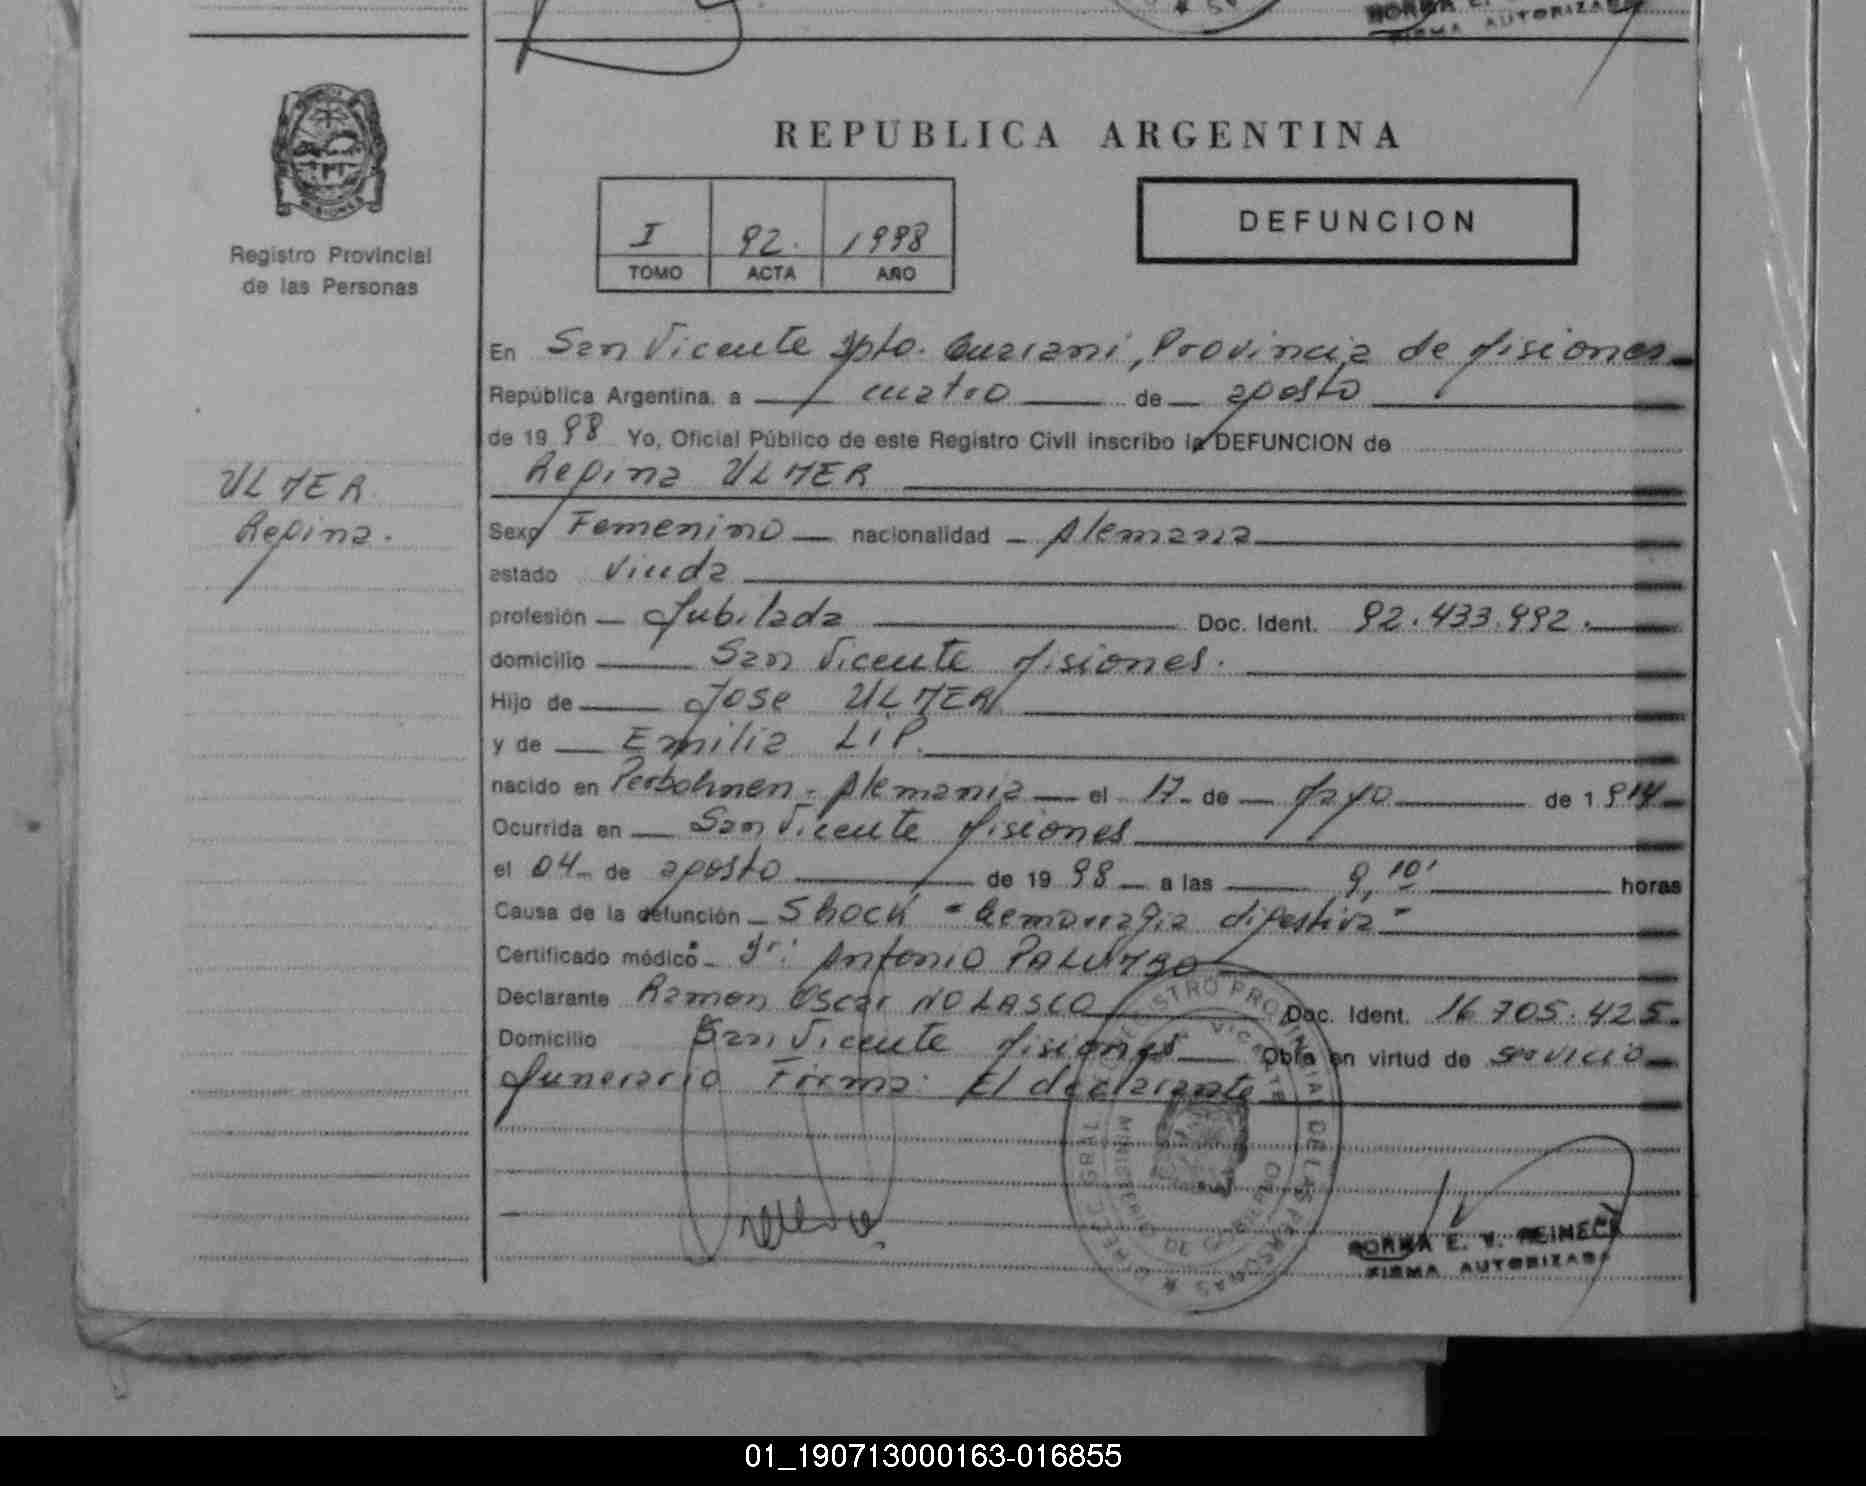 REPUBLICA ARGENTINA
MISIONES
Registro Provincial
de las Personas
I 92. 1998
TOMO ACTA AÑO
DEFUNCION
ULMER
Regina.
En San Vicente Dpto. Guarani, Provincia de Misiones
República Argentina, a cuatro de agosto
de 1998 Yo, Oficial Público de este Registro Civil inscribo la DEFUNCION de
Regina ULMER
Sexo Femenino nacionalidad Alemana
estado Viuda
profesión Jubilada Doc. Ident. 92.433.992.
domicilio San Vicente Misiones.
Hijo de Jose ULMER
y de Emilia LIP.
nacido en Perbohnen - Alemania el 17 de Mayo de 1914
Ocurrida en San Vicente Misiones
el 04 de agosto de 1998 a las 9,10' horas
Causa de la defunción Shock - hemorragia digestiva -
Certificado médico Dr: Antonio PALUMBO
Declarante Ramon Oscar NOLASCO Doc. Ident. 16.705.425.
Domicilio San Vicente Misiones Obra en virtud de servicio
funerario Firma: El declarante
NORMA E. V. REINECK
FIRMA AUTORIZADA
01_190713000163-016855